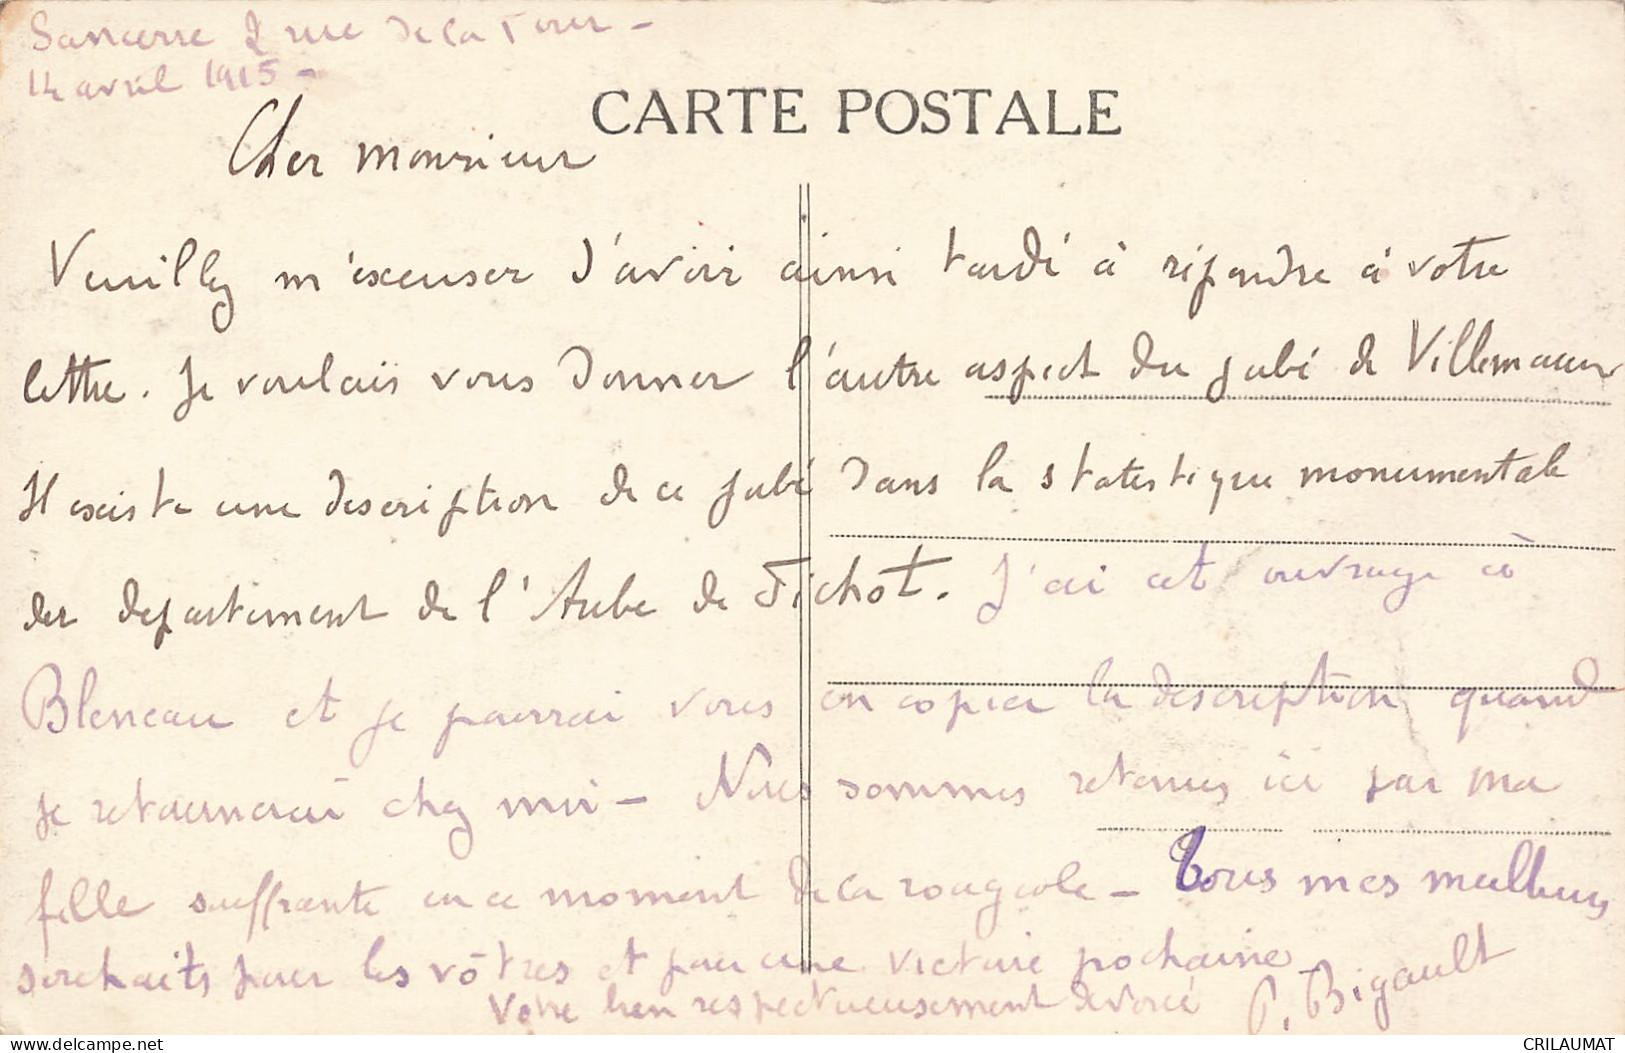 Sancerre 2 rue de la Tour -
14 avril 1915 -
CARTE POSTALE
Cher monsieur
Veuillez m'excuser d'avoir ainsi tardé à répondre à votre
lettre. Je voulais vous donner l'autre aspect du jubé de Villemaur
Il existe une description de ce jubé dans la statistique monumentale
du departement de l'Aube de Fichot. J'ai cet ouvrage à
Bleneau et je pourrai vous en copier la description quand
je retournerai chez moi - Nous sommes retenus ici par ma
fille souffrante en ce moment de la rougeole - Tous mes meilleurs
souhaits pour les vôtres et pour une victoire prochaine
Votre bien respectueusement devoué P. Bigault
delcampe.net
CRILAUMAT